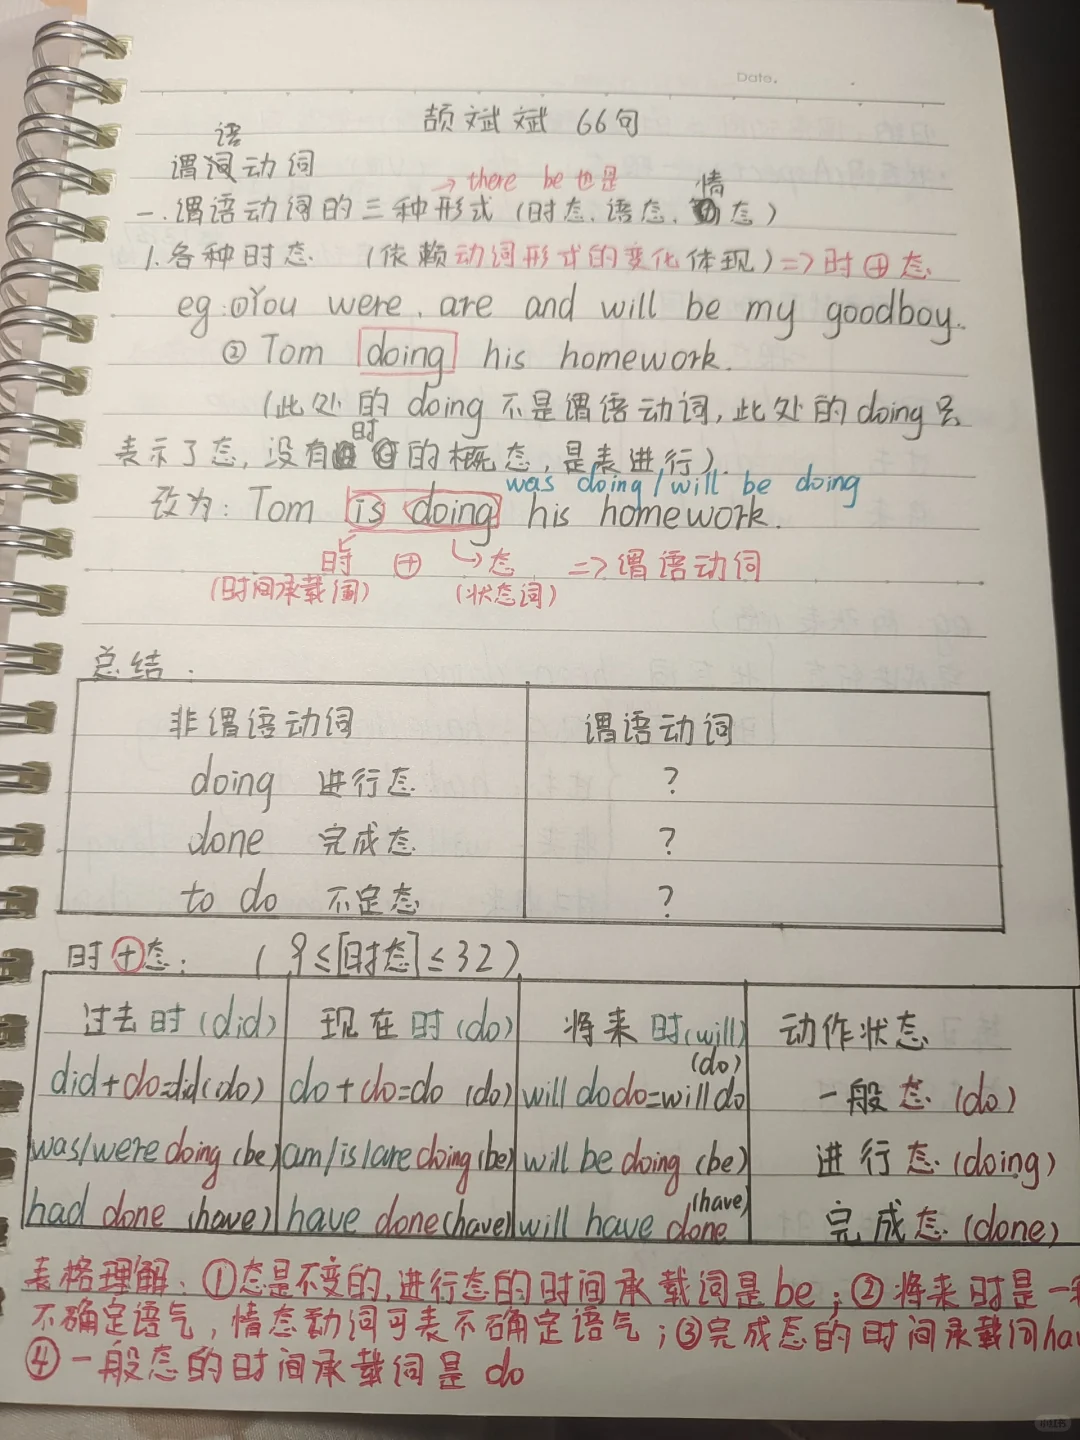 Date.
颉斌斌 66句
语
谓词动词
→ there be 也是
情
一.谓语动词的三种形式(时态.语态.动态)
1.各种时态.(依赖动词形式的变化体现)=>时⊕态
eg:①You were, are and will be my goodboy.
② Tom doing his homework.
(此处的doing不是谓语动词,此处的doing只
时
表示了态,没有的概态,是表进行).
was doing/will be doing
改为: Tom is doing his homework.
时 ⊕ 态 => 谓语动词
(时间承载词) (状态词)
总结:
非谓语动词 谓语动词
doing 进行态 ?
done 完成态 ?
to do 不定态 ?
时⊕态: (9≤[时态]≤32)
过去时(did) 现在时(do) 将来时(will) 动作状态
(do)
did+do=did(do) do+do=do (do) will do do=will do 一般态(do)
was/were doing (be) am/is/are doing(be) will be doing (be) 进行态(doing)
(have)
had done (have) have done(have) will have done 完成态(done)
表格理解:①态是不变的,进行态的时间承载词是be;②将来时是一种
不确定语气,情态动词可表不确定语气;③完成态的时间承载词ha
④一般态的时间承载词是 do